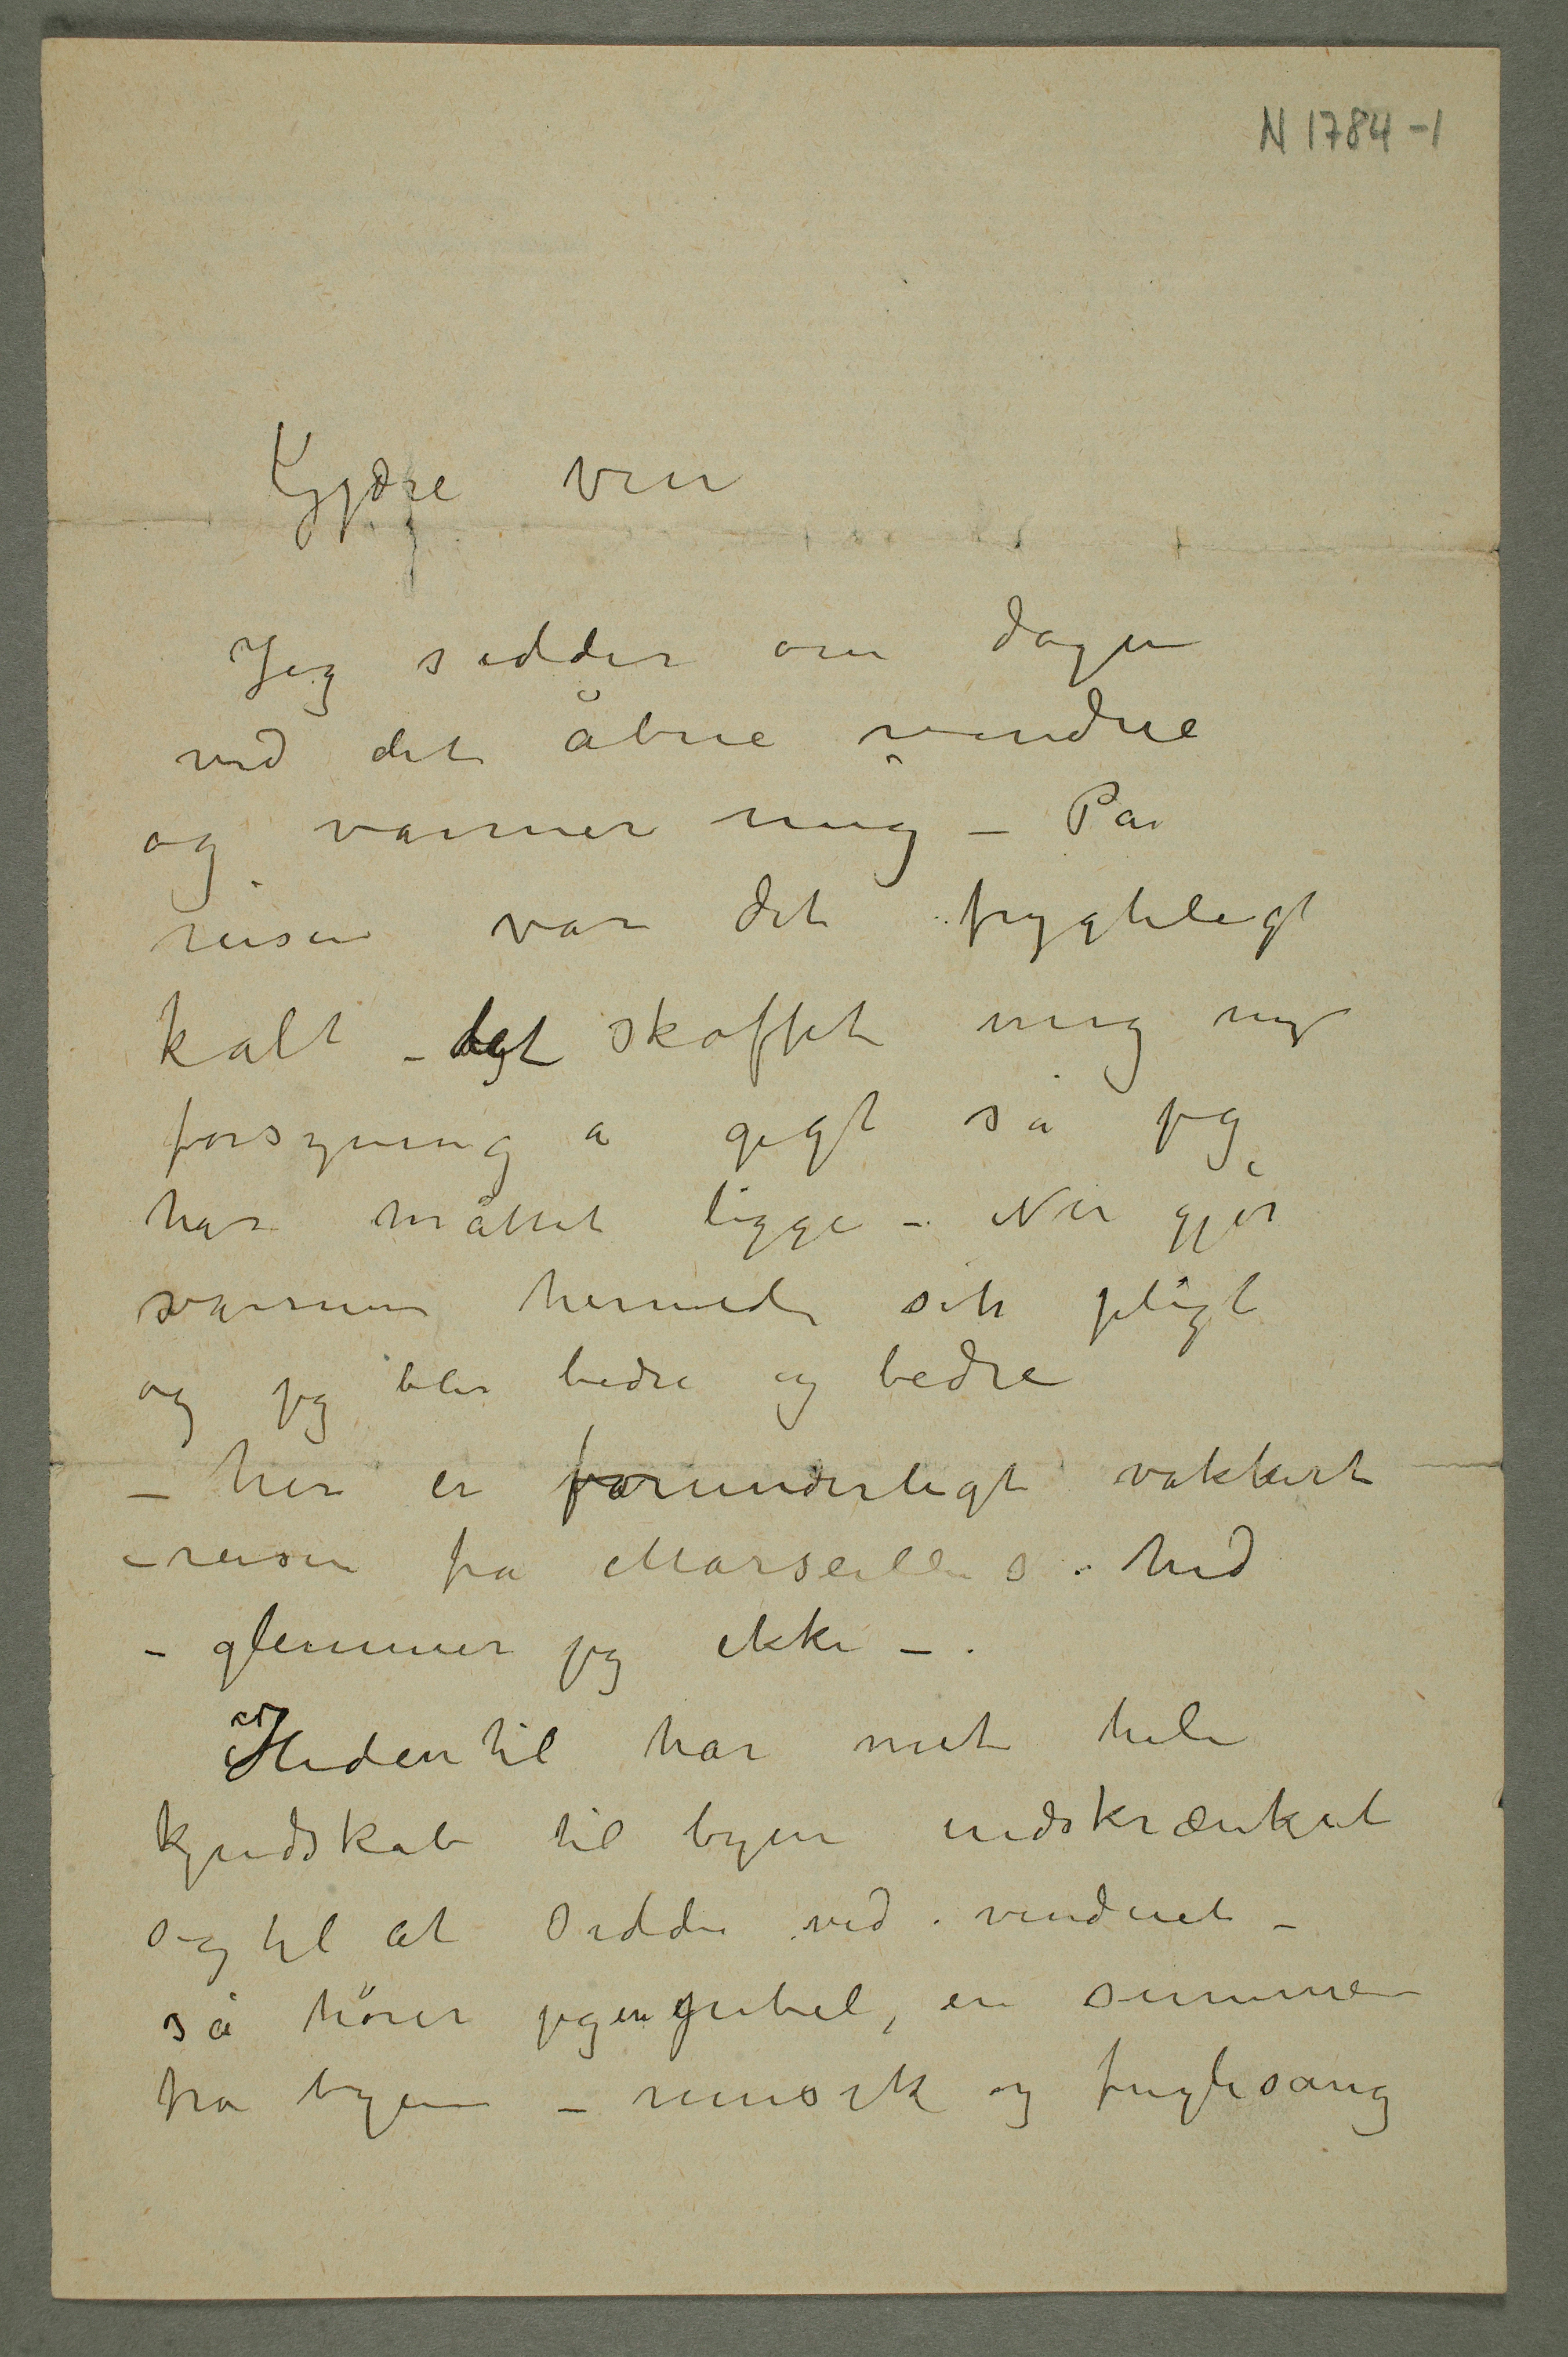 N 1784-1
Kjære ven
Jeg sidder om dagen
ved det åbne vindue
og varmer mig – På
reisen var det frygteligt
kalt – det skaffet mig ny
forsyning a gigt så jeg
har måttet ligge – Nu gjør
varmen hernede sit pligt
og jeg blir bedre og bedre
– her er forunderligt vakkert
– reisen fra Marseilles hid
– glemmer jeg ikke –
Hidentil har mit hele
kjendskab til byen indskrænket
sig til at sidde ved vinduet –
så hører jeg en jubel, en summen
fra byen – musik og fuglesang